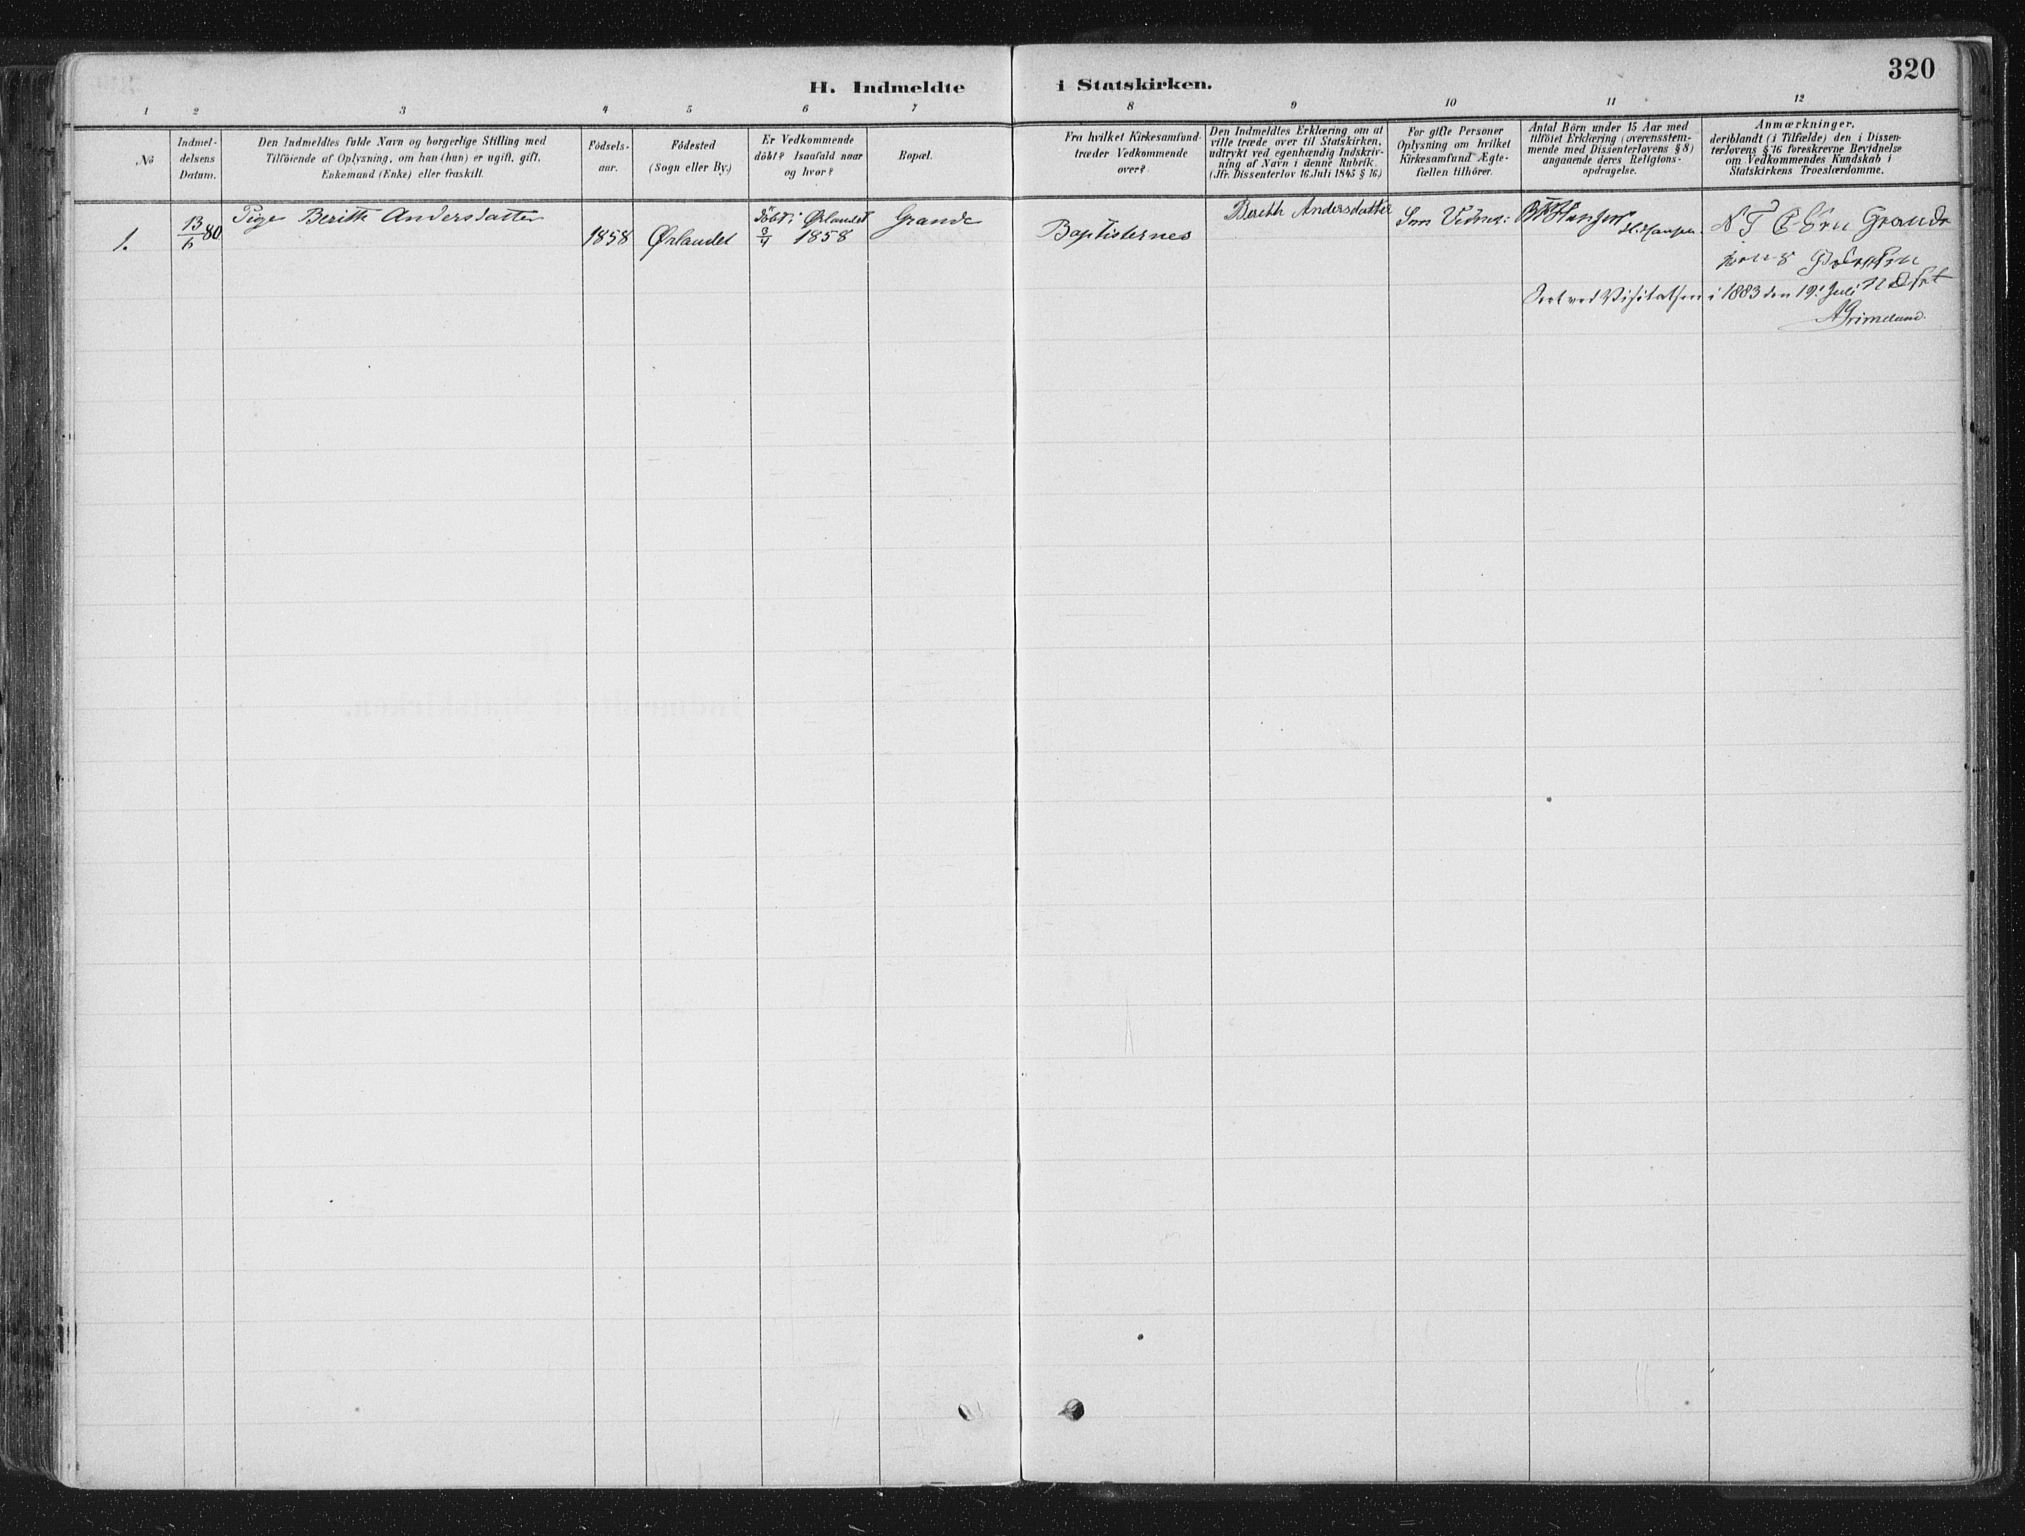 320
H. Indmeldte i Statskirken.
1 2 3 4 5 6 7 8 9 10 11 12
No
Indmel-
delsens
Datum.
Den Indmeldtes fulde Navn og borgerlige Stilling med
Tilföiende af Oplysning, om han (hun) er ugift, gift,
Enkemand (Enke) eller fraskilt.
Födsels-
aar.
Födested
(Sogn eller By.)
Er Vedkommende
döbt? Isaafald naar
og hvor?
Bopæl.
Fra hvilket Kirkesamfund
træder Vedkommende
over?
Den Indmeldtes Erklæring om at
ville træde over til Statskirken,
udtrykt ved egenhændig Indskriv-
ning af Navn i denne Rubrik.
(Jfr. Dissenterlov 16 Juli 1845 § 16.)
For gifte Personer
Oplysning om hvilket
Kirkesamfund Ægte-
fællen tilhörer.
Antal Börn under 15 Aar med
tilföiet Erklæring (overensstem-
mende med Dissenterlovens § 8)
angaaende deres Religions-
opdragelse.
Anmærkninger,
deriblandt (i Tilfælde) den i Dissen-
terlovens § 16 foreskrevne Bevidnelse
om Vedkommendes Kundskab i
Statskirkens Troeslærdomme.
1.
13/6 80
Pige Berith Andersdatter
1858
Ørlandet
döbt i Ørlandet
3/4 1858
Grande
Baptisternes
Berith Andersdatter
Som Vidne:
H. Hansen.
Grande
Seet ved Visitatsen i 1883 den 19. Juli
AGrimelund.